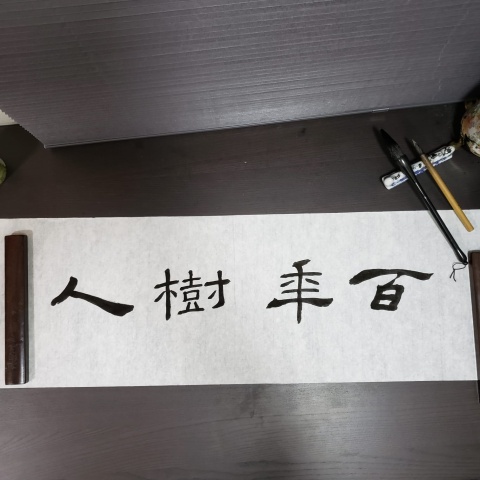 百年樹人